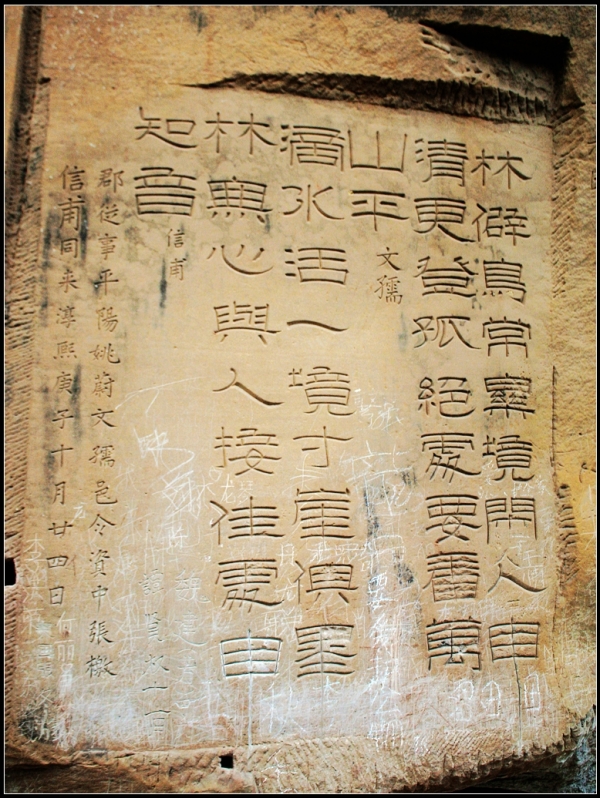 林僻鳥常境閑人自
清更登孤絕處要看萬
山平 文孺
滴水活一境寸崖俱
林無心與人接佳處自
知音 信甫
郡從事平陽姚蔚文孺邑令資中張檄
信甫同来淳熙庚子十月廿四日